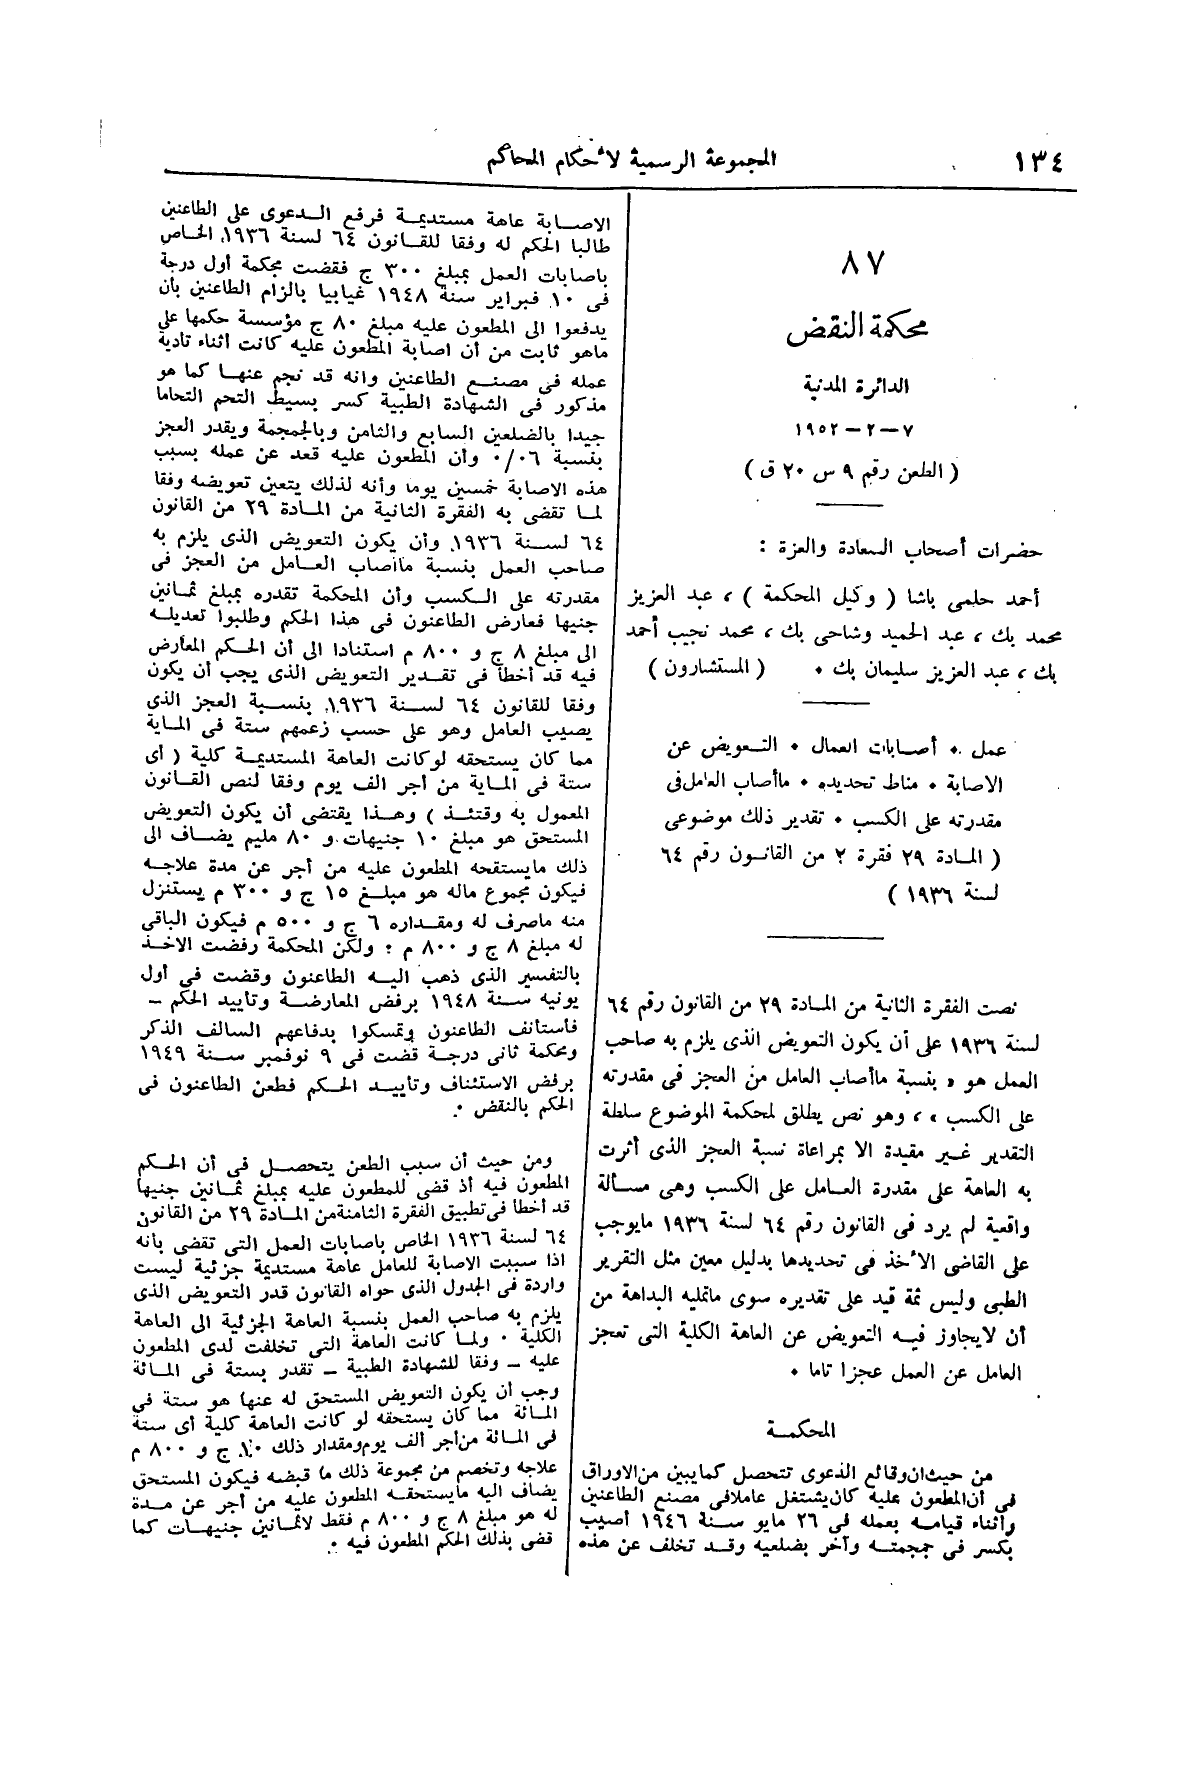 ١٣٤
المجموعة الرسمية لأحكام المحاكم
٨٧
محكمة النقض
الدائرة المدنية
٧ – ٢ – ١٩٥٢
( الطعن رقم ٩ س ٢٠ ق )
حضرات أصحاب السعادة والعزة :
أحمد حلمى باشا ( وكيل المحكمة ) ، عبد العزيز
محمد بك ، عبد الحميد وشاحى بك ، محمد نجيب أحمد
بك ، عبد العزيز سليمان بك . ( المستشارون )
عمل . أصابات العمال . التعويض عن
الاصابة . مناط تحديده . ماأصاب العامل فى
مقدرته على الكسب . تقدير ذلك موضوعى
( المادة ٢٩ فقرة ٢ من القانون رقم ٦٤
لسنة ١٩٣٦ )
نصت الفقرة الثانية من المادة ٢٩ من القانون رقم ٦٤
لسنة ١٩٣٦ على أن يكون التعويض الذى يلزم به صاحب
العمل هو « بنسبة ماأصاب العامل من العجز فى مقدرته
على الكسب » ، وهو نص يطلق لمحكمة الموضوع سلطة
التقدير غير مقيدة الا بمراعاة نسبة العجز الذى أثرت
به العاهة على مقدرة العامل على الكسب وهى مسألة
واقعية لم يرد فى القانون رقم ٦٤ لسنة ١٩٣٦ مايوجب
على القاضى الأخذ فى تحديدها بدليل معين مثل التقرير
الطبى وليس ثمة قيد على تقديره سوى ماتمليه البداهة من
أن لايجاوز فيه التعويض عن العاهة الكلية التى تعجز
العامل عن العمل عجزا تاما .
المحكمة
من حيث ان وقائع الدعوى تتحصل كما يبين من الاوراق
فى أن المطعون عليه كان يشتغل عاملا فى مصنع الطاعنين
وأثناء قيامه بعمله فى ٢٦ مايو سنة ١٩٤٦ أصيب
بكسر فى جمجمته وآخر بضلعيه وقد تخلف عن هذه
الاصابة عاهة مستديمة فرفع الدعوى على الطاعنين
طالبا الحكم له وفقا للقانون ٦٤ لسنة ١٩٣٦ الخاص
باصابات العمل بمبلغ ٣٠٠ ج فقضت محكمة أول درجة
فى ١٠ فبراير سنة ١٩٤٨ غيابيا بالزام الطاعنين بأن
يدفعوا الى المطعون عليه مبلغ ٨٠ ج مؤسسة حكمها على
ماهو ثابت من أن اصابة المطعون عليه كانت أثناء تادية
عمله فى مصنع الطاعنين وانه قد نجم عنها كما هو
مذكور فى الشهادة الطبية كسر بسيط التحم التحاما
جيدا بالضلعين السابع والثامن وبالجمجمة ويقدر العجز
بنسبة ٠٦ /٠ وأن المطعون عليه قعد عن عمله بسبب
هذه الاصابة خمسين يوما وأنه لذلك يتعين تعويضه وفقا
لما تقضى به الفقرة الثانية من المادة ٢٩ من القانون
٦٤ لسنة ١٩٣٦ وأن يكون التعويض الذى يلزم به
صاحب العمل بنسبة ماأصاب العامل من العجز فى
مقدرته على الكسب وأن المحكمة تقدره بمبلغ ثمانين
جنيها فعارض الطاعنون فى هذا الحكم وطلبوا تعديله
الى مبلغ ٨ ج و ٨٠٠ م استنادا الى أن الحكم المعارض
فيه قد أخطأ فى تقدير التعويض الذى يجب أن يكون
وفقا للقانون ٦٤ لسنة ١٩٣٦ بنسبة العجز الذى
يصيب العامل وهو على حسب زعمهم ستة فى الماية
مما كان يستحقه لو كانت العاهة المستديمة كلية ( أى
ستة فى الماية من أجر الف يوم وفقا لنص القانون
المعمول به وقتئذ ) وهذا يقتضى أن يكون التعويض
المستحق هو مبلغ ١٠ جنيهات و ٨٠ مليم يضاف الى
ذلك مايستقحه المطعون عليه من أجر عن مدة علاجه
فيكون مجموع ماله هو مبلغ ١٥ ج و ٣٠٠ م يستنزل
منه ماصرف له ومقداره ٦ ج و ٥٠٠ م فيكون الباقى
له مبلغ ٨ ج و ٨٠٠ م : ولكن المحكمة رفضت الاخذ
بالتفسير الذى ذهب اليه الطاعنون وقضت فى أول
يونيه سنة ١٩٤٨ برفض المعارضة وتأييد الحكم –
فأستانف الطاعنون وتمسكوا بدفاعهم السالف الذكر
ومحكمة ثانى درجة قضت فى ٩ نوفمبر سنة ١٩٤٩
برفض الاستئناف وتأييد الحكم فطعن الطاعنون فى
الحكم بالنقض .
ومن حيث أن سبب الطعن يتحصل فى أن الحكم
المطعون فيه أذ قضى للمطعون عليه بمبلغ ثمانين جنيها
قد أخطا فى تطبيق الفقرة الثامنة من المادة ٢٩ من القانون
٦٤ لسنة ١٩٣٦ الخاص باصابات العمل التى تقضى بأنه
اذا سببت الاصابة للعامل عاهة مستديمة جزئية ليست
واردة فى الجدول الذى حواه القانون قدر التعويض الذى
يلزم به صاحب العمل بنسبة العاهة الجزئية الى العاهة
الكلية . ولما كانت العاهة التى تخلفت لدى المطعون
عليه – وفقا للشهادة الطبية – تقدر بستة فى المائة
وجب أن يكون التعويض المستحق له عنها هو ستة فى
المائة مما كان يستحقه لو كانت العاهة كلية أى ستة
فى المائة من أجر ألف يوم ومقدار ذلك ١٠ ج و ٨٠٠ م
علاجه وتخصم من مجموعة ذلك ما قبضه فيكون المستحق
يضاف اليه مايستحقه المطعون عليه من أجر عن مدة
له هو مبلغ ٨ ج و ٨٠٠ م فقط لاثمانين جنيهات كما
قضى بذلك الحكم المطعون فيه .